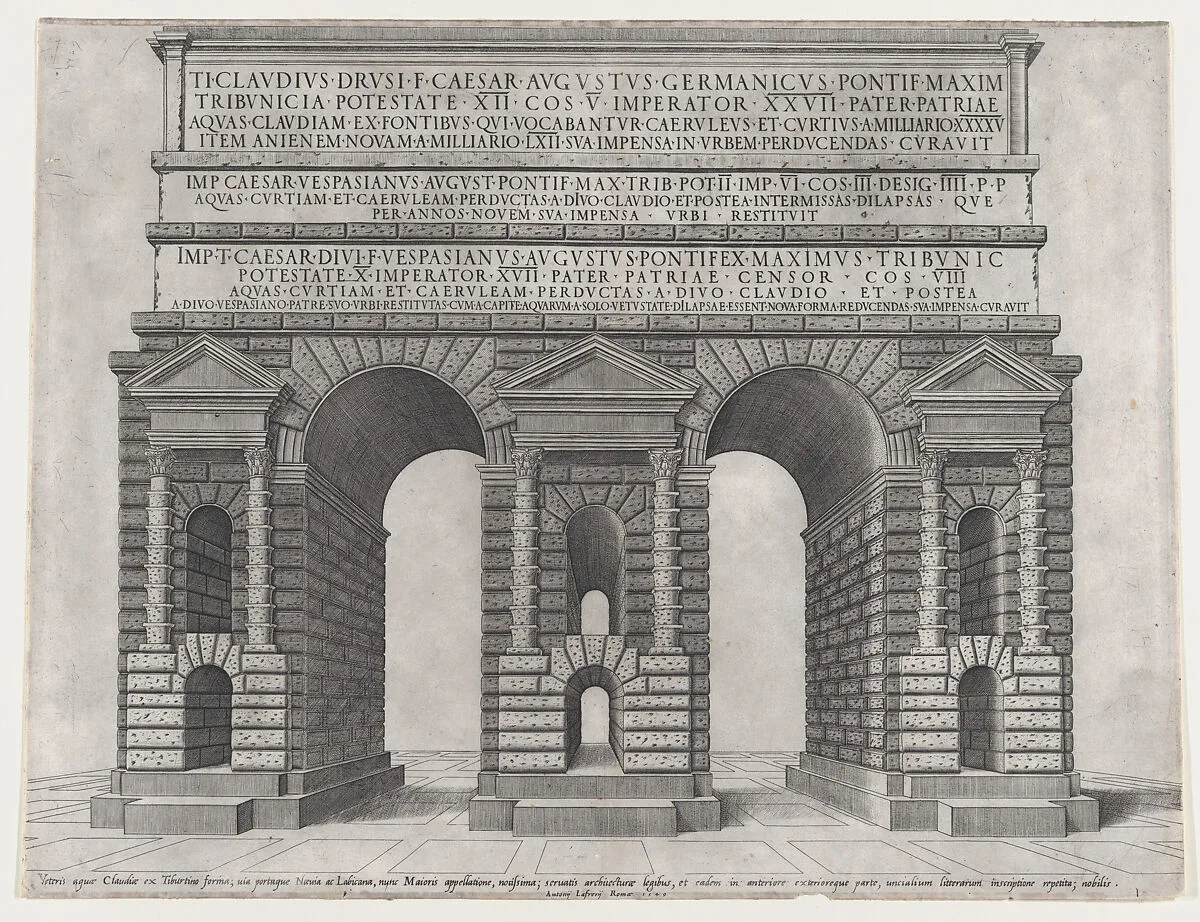 TI·CLAVDIVS·DRVSI·F·CAESAR·AVGVSTVS·GERMANICVS·PONTIF·MAXIM
TRIBVNICIA·POTESTATE·XII·COS·V·IMPERATOR·XXVII·PATER·PATRIAE
AQVAS·CLAVDIAM·EX·FONTIBVS·QVI·VOCABANTVR·CAERVLEVS·ET·CVRTIVS·A·MILLIARIO·XXXXV
ITEM·ANIENEM·NOVAM·A·MILLIARIO·LXII·SVA·IMPENSA·IN·VRBEM·PERDVCENDAS·CVRAVIT
IMP·CAESAR·VESPASIANVS·AVGVST·PONTIF·MAX·TRIB·POT·II·IMP·VI·COS·III·DESIG·IIII·P·P
AQVAS·CVRTIAM·ET·CAERVLEAM·PERDVCTAS·A·DIVO·CLAVDIO·ET·POSTEA·INTERMISSAS·DILAPSAS·QVE
PER·ANNOS·NOVEM·SVA·IMPENSA·VRBI·RESTITVIT
IMP·T·CAESAR·DIVI·F·VESPASIANVS·AVGVSTVS·PONTIFEX·MAXIMVS·TRIBVNIC
POTESTATE·X·IMPERATOR·XVII·PATER·PATRIAE·CENSOR·COS·VIII
AQVAS·CVRTIAM·ET·CAERVLEAM·PERDVCTAS·A·DIVO·CLAVDIO·ET·POSTEA
A·DIVO·VESPASIANO·PATRE·SVO·VRBI·RESTITVTAS·CVM·A·CAPITE·AQVARVM·A·SOLO·VETVSTATE·DILAPSAE·ESSENT·NOVA·FORMA·REDVCENDAS·SVA·IMPENSA·CVRAVIT
Veteris aquæ Claudiæ ex Tiburtino forma; uia portuque Nœuia ac Labicana, nunc Maioris appellatione, notissima; seruatis architecturæ legibus, et eadem in anteriore exterioreque parte, uncialium litterarum inscriptione repetita; nobilis.
Antonij Lafrerij Romæ 1549